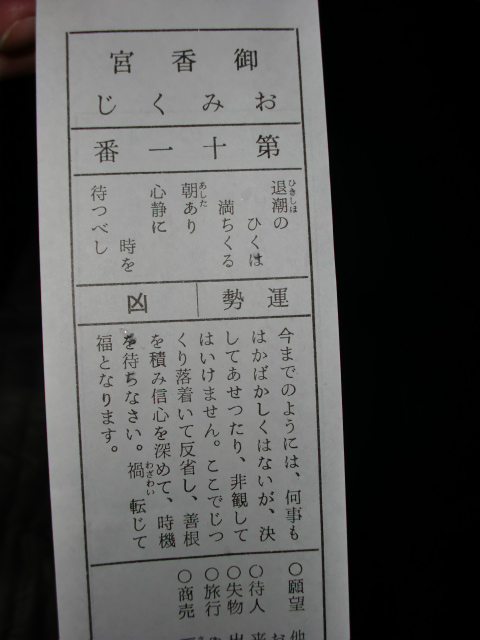 御香宮
おみくじ
第十一番
退潮の
ひくは
満ちくる
朝あり
心静に
時を
待つべし
運勢
凶
今までのようには、何事も
はかばかしくはないが、決
してあせつたり、非観して
はいけません。ここでじつ
くり落着いて反省し、善根
を積み信心を深めて、時機
を待ちなさい。禍転じて
福となります。
○願望
○待人
○失物
○旅行
○商売